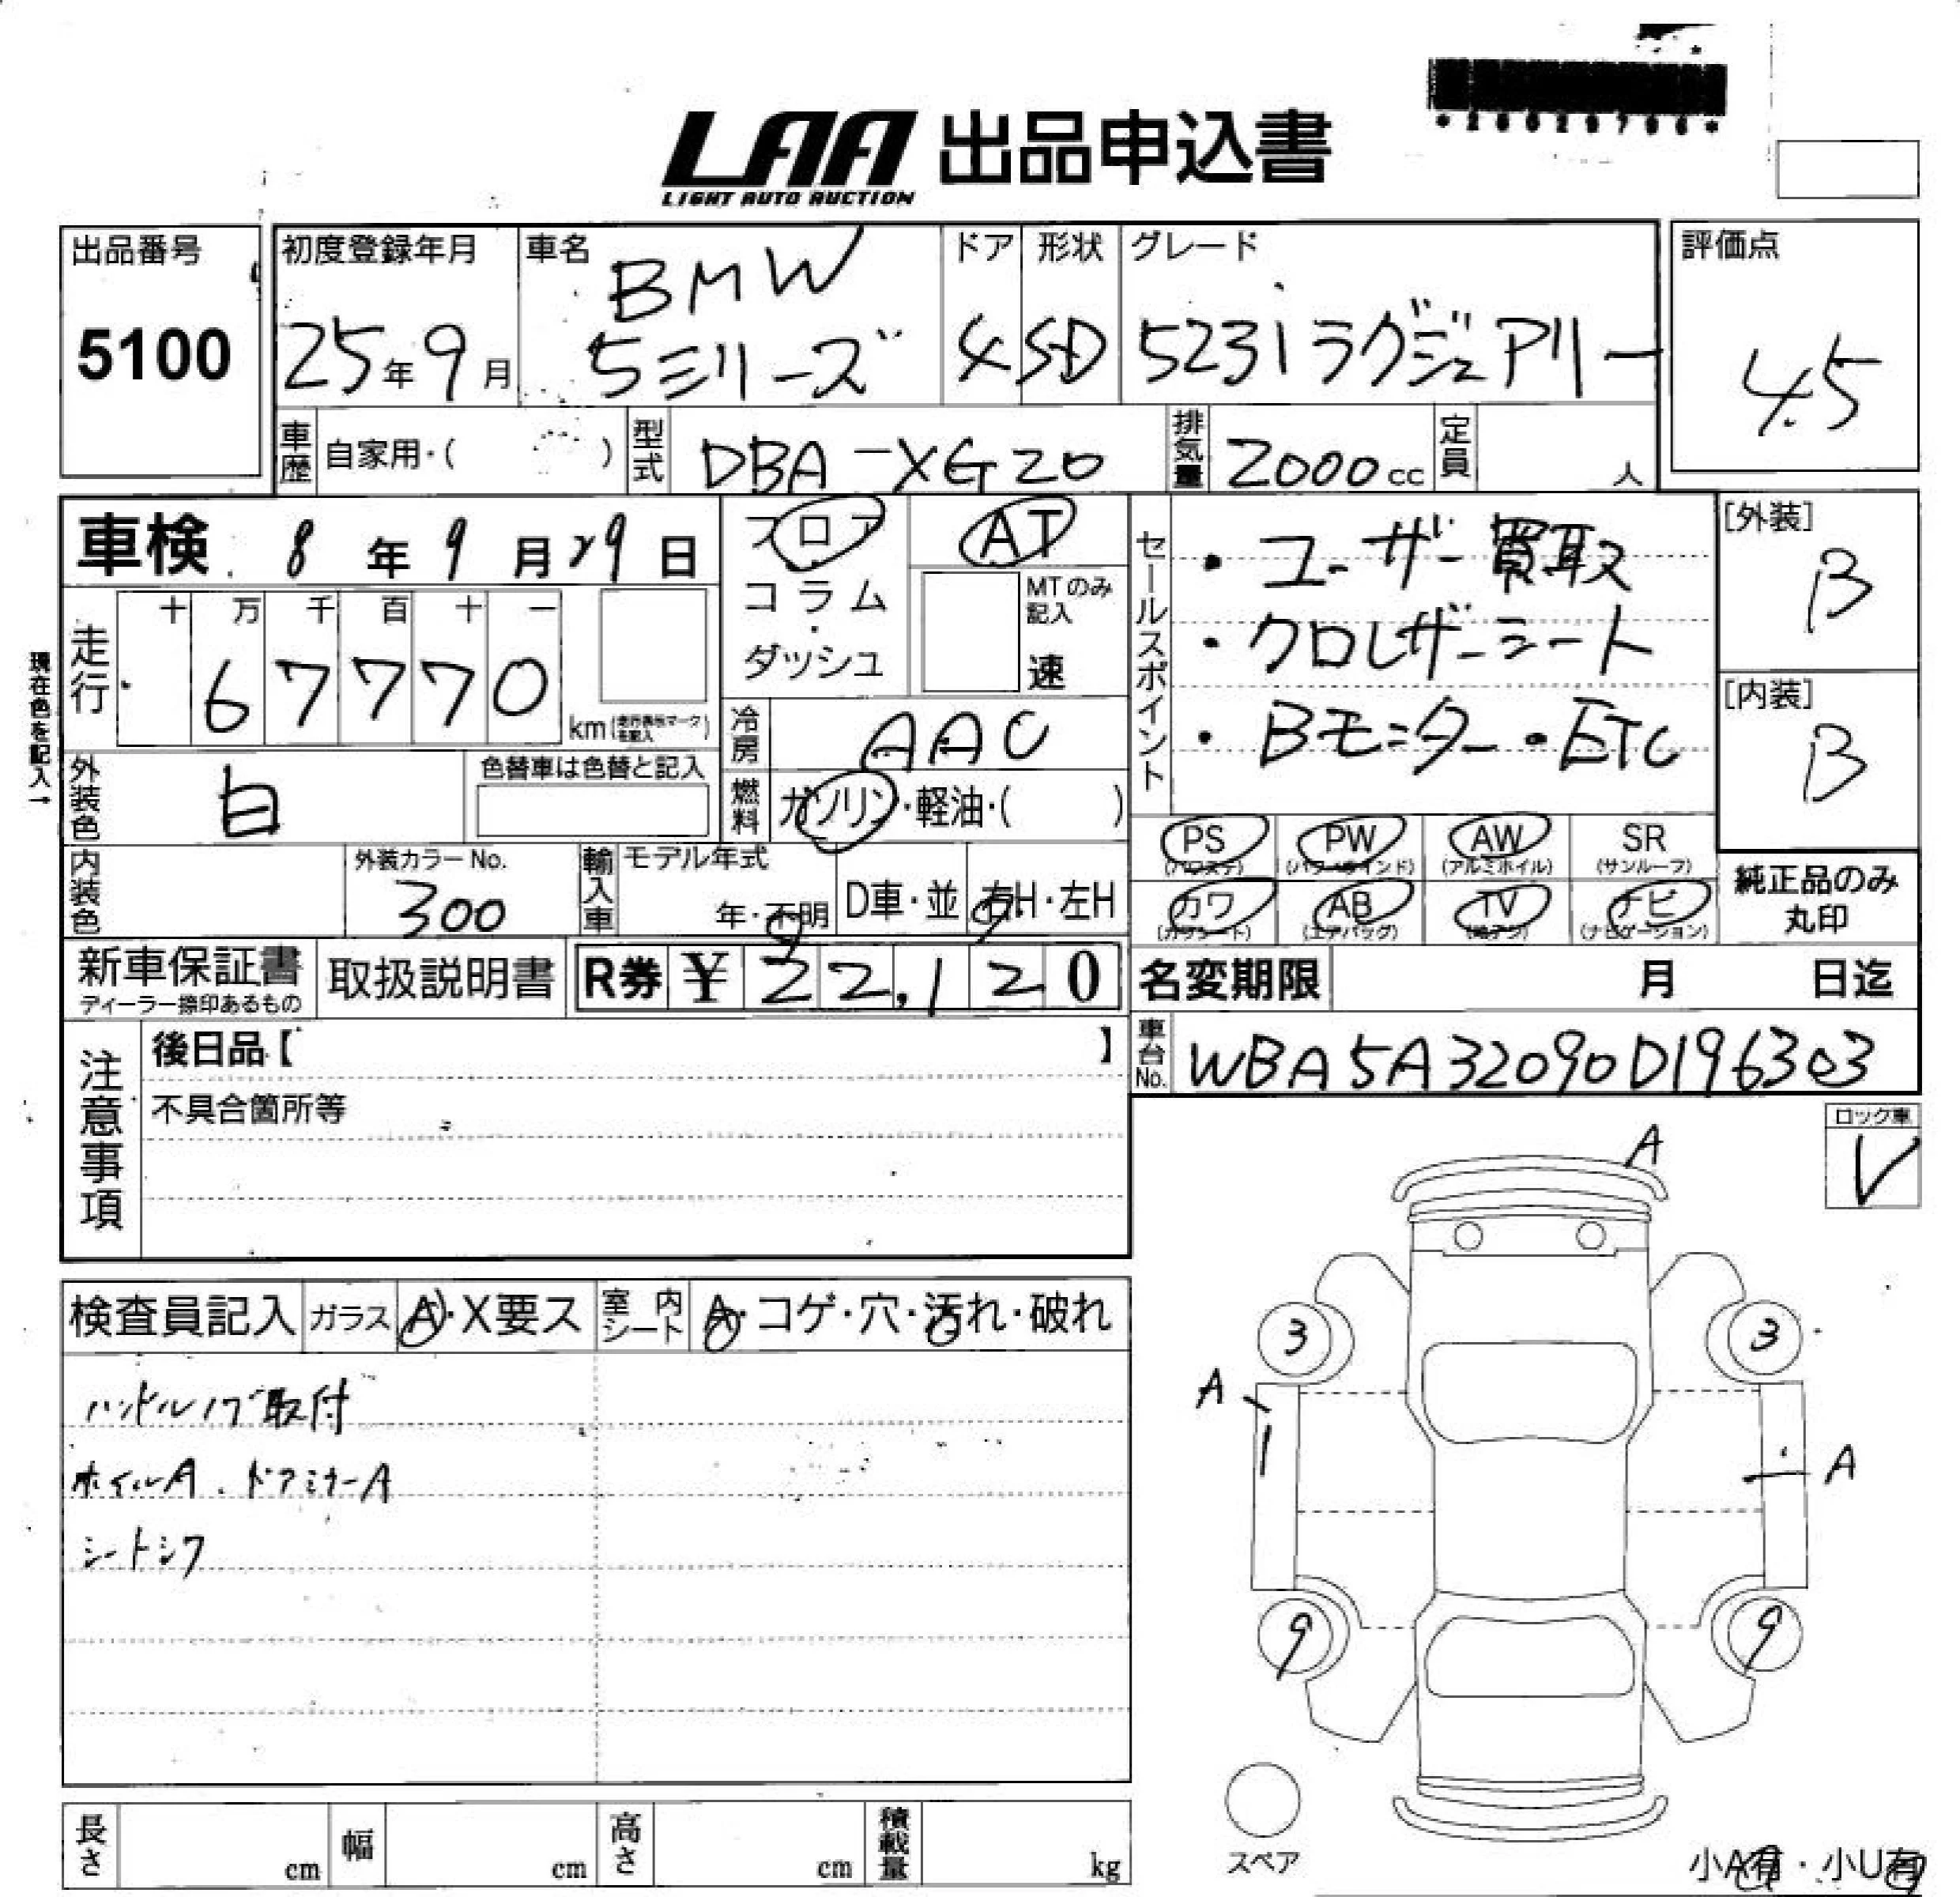 *20020706*
LAA 出品申込書
LIGHT AUTO AUCTION
出品番号
5100
初度登録年月
25年9月
車名
BMW
5シリーズ
ドア
4
形状
SD
グレード
523iラグジュアリー
評価点
4.5
車歴
自家用・( )
型式
DBA-XG20
排気量
2000cc
定員
人
車検 8年9月29日
フロア
コラム
・
ダッシュ
AT
MTのみ
記入
速
セールスポイント
・ユーザー買取
・クロレザーシート
・Bモニター・ETC
[外装]
B
[内装]
B
現在色を記入→
走行
十 万 千 百 十 一
6 7 7 7 0
km(走行表示マークを記入)
冷房
AAC
燃料
ガソリン・軽油・( )
外装色
白
色替車は色替と記入
内装色
外装カラーNo.
300
輸入車
モデル年式
年・不明
D車・並
右H・左H
PS
(パワステ)
PW
(パワーウインド)
AW
(アルミホイル)
SR
(サンルーフ)
カワ
(カワシート)
AB
(エアバッグ)
TV
ナビ
(ナビゲーション)
純正品のみ
丸印
新車保証書
ディーラー捺印あるもの
取扱説明書
R券 ¥22,120
名変期限 月 日迄
車台No.
WBA5A32090D196303
注意事項
後日品【 】
不具合箇所等
ロック車
V
検査員記入
ガラス
A・X要ス
室内シート
A・コゲ・穴・汚れ・破れ
ハンドルノブ取付
ホイルA.ドアミラーA
シートシワ
A
3
3
A
A
9
9
スペア
小A有・小U有
長さ
cm
幅
cm
高さ
cm
積載量
kg